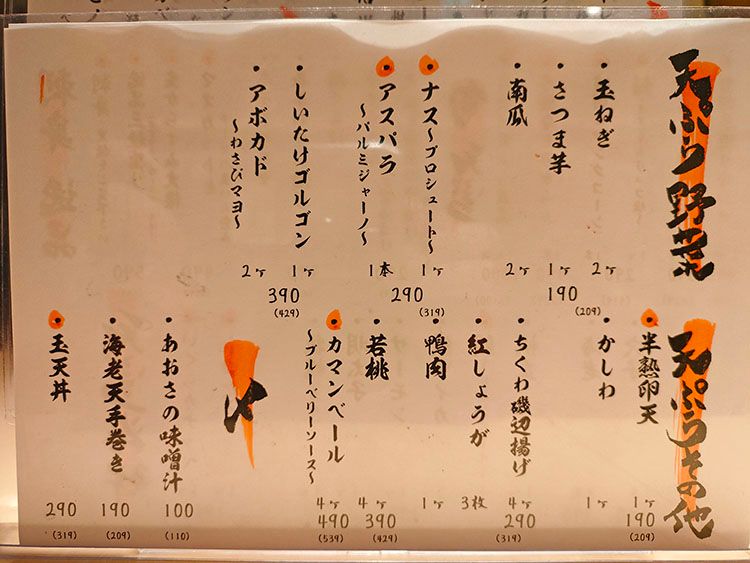 天ぷら野菜
・玉ねぎ 2ヶ
・さつま芋 1ヶ
・南瓜 2ヶ
190
(209)
・ナス〜プロシュート〜 1ヶ
・アスパラ〜パルミジャーノ〜 1本
290
(319)
・しいたけゴルゴン 1ヶ
・アボカド〜わさびマヨ〜 2ヶ
390
(429)
天ぷらその他
・半熟卵天 1ヶ
・かしわ 1ヶ
190
(209)
・ちくわ磯辺揚げ 4ヶ
・紅しょうが 3枚
・鴨肉 1ヶ
290
(319)
・若桃 4ヶ
390
(429)
・カマンベール〜ブルーベリーソース〜 4ヶ
490
(539)
〆
・あおさの味噌汁 100
(110)
・海老天手巻き 190
(209)
・玉天丼 290
(319)